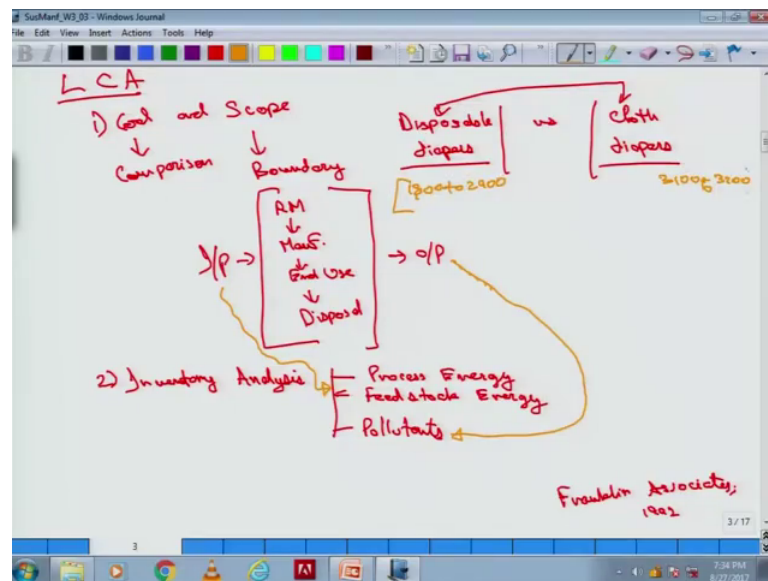 SusManf_W3_03 - Windows Journal
File Edit View Insert Actions Tools Help
LCA
1) Goal and Scope
Comparison Boundary
Disposable diapers vs Cloth diapers
1800 to 2900
RM
Manf.
End Use
Disposal
I/P → → O/P
2) Inventory Analysis
Process Energy
Feedstock Energy
Pollutants
Franklin Associates,
1992
3 / 17
3
7:34 PM
3/27/2017